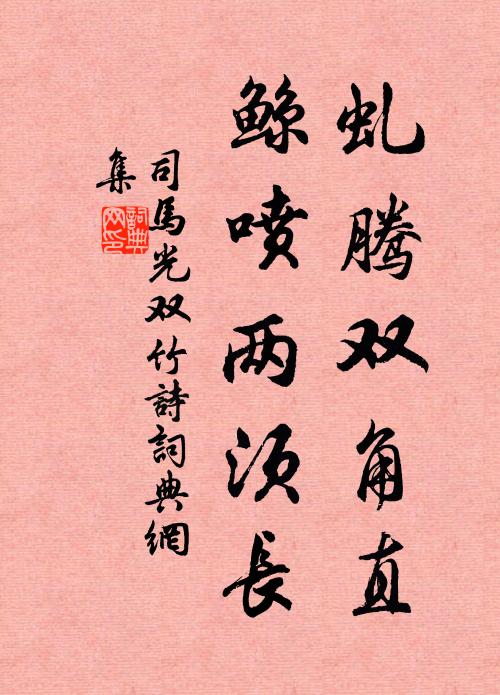 虬腾双角直
鲸喷两须長
司馬光双竹詩詞典網
集
詞典网印